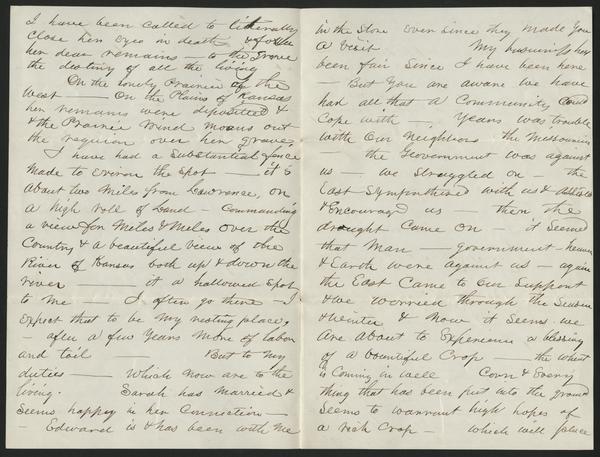 I have been called to litterally
close her eyes in death & follow
her dear remains — to the Grave
the destiny of all the living
On the lonely Prairie of the
West — On the Plains of Kansas
her remains were deposited &
& the Prairie Wind moans out
the requium over her grave,
I have had a substantial fence
made to environ the spot — it is
about two Miles from Lawrence, on
a high roll of Land Commanding
a view for Miles & Miles over the
Country & a beautiful view of the
River of Kansas both up & down the
river — it a hallowed spot
to me — I often go there — I
expect that to be my resting place,
— after a few Years More of labor
and toil But to my
duties — which now are to the
living. Sarah has Married &
seems happy in her Connection —
— Edward is & has been with Me
in the Store ever since they made You
a Visit My business has
been fair since I have been here
— But You are aware we have
had all that a Community could
Cope with —, Years was trouble
with Our Neighbors the Missourians
— the Government was against
us — we struggled on — the
East Sympathised with us & assisted
& Encouraged us — then the
drought Came on — it seemed
that Man — Government — heaven
& Earth were against us — again
the East Came to Our Support
& we worried through the Season
& Winter & Now it seems we
are about to Experience a blessing
of a bountiful Crop — the wheat
is Coming in well Corn & Every
thing that has been put into the ground
seems to warrant high hopes of
a rich Crop — which will place